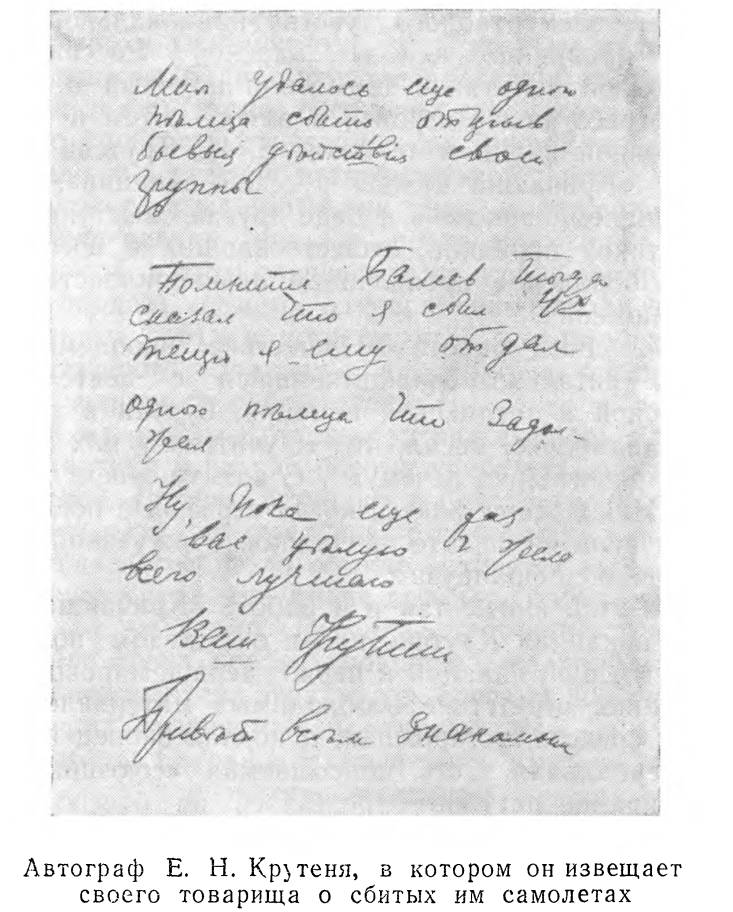 Мнѣ удалось еще одного
нѣмца сбить открыв
боевыя дѣйствія своей
группы
Помните Балиев тогда
сказал что я сбил 4х
Теперь я ему отдал
одного нѣмца что задол-
жал
Ну, пока еще раз
вас цѣлую и желаю
всего лучшаго
Ваш Крутень
Привѣт всѣм знакомым
Автограф Е. Н. Крутеня, в котором он извещает
своего товарища о сбитых им самолетах